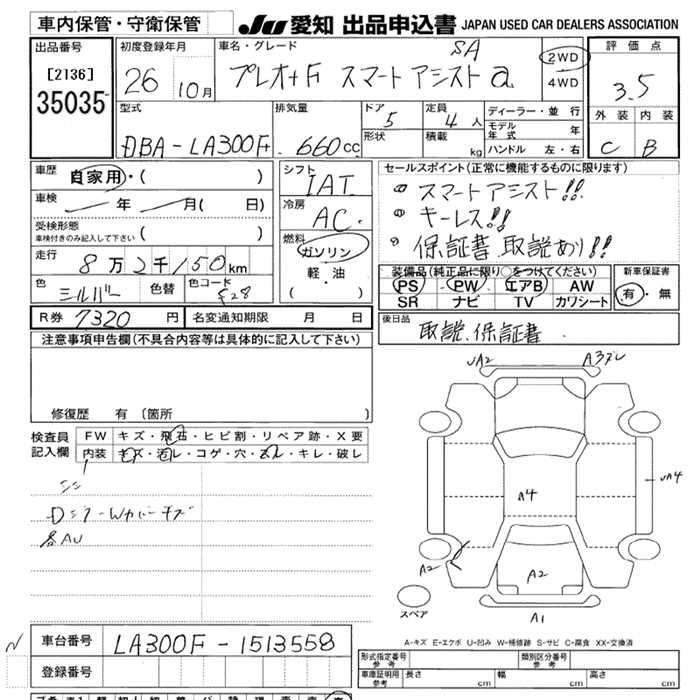 車内保管・守衛保管
JU 愛知 出品申込書 JAPAN USED CAR DEALERS ASSOCIATION
出品番号
[2136]
35035
初度登録年月
26 10月
車名・グレード
SA
プレオ+F スマートアシスト a
2WD
4WD
評価点
3.5
型式
DBA-LA300F
排気量
660cc
ドア
5
形状
定員
4人
積載
kg
ディーラー・並行
モデル年式 年
ハンドル 左・右
外装 内装
C B
車歴
自家用・( )
車検
年 月( 日)
受検形態
車検付きのみ記入して下さい ( )
走行
8万2千150km
色
シルバー
色替
色コード
E28
シフト
IAT
冷房
AC
燃料
ガソリン
軽・油
( )
セールスポイント(正常に機能するものに限ります)
スマートアシスト!!
キーレス!!
保証書、取説あり!!
装備品(純正品に限り○をつけてください)
PS PW エアB AW
SR ナビ TV カワシート
新車保証書
有・無
R券 7320 円 名変通知期限 月 日
後日品
取説、保証書
注意事項申告欄(不具合内容等は具体的に記入して下さい)
修復歴 有 〔箇所 〕
検査員
記入欄
FW キズ・飛石・ヒビ割・リペア跡・X要
内装 キズ・汚レ・コゲ・穴・スレ・キレ・破レ
各AU
UA2
A3
A4
A4
A2
A2
A1
スペア
A-キズ E-エクボ U-凹み W-補修跡 S-サビ C-腐食 XX-交換済
車台番号 LA300F-1513558
登録番号
型式指定番号
参考
類別区分番号
参考
車庫証明用
参考
長さ cm 幅 cm 高さ cm